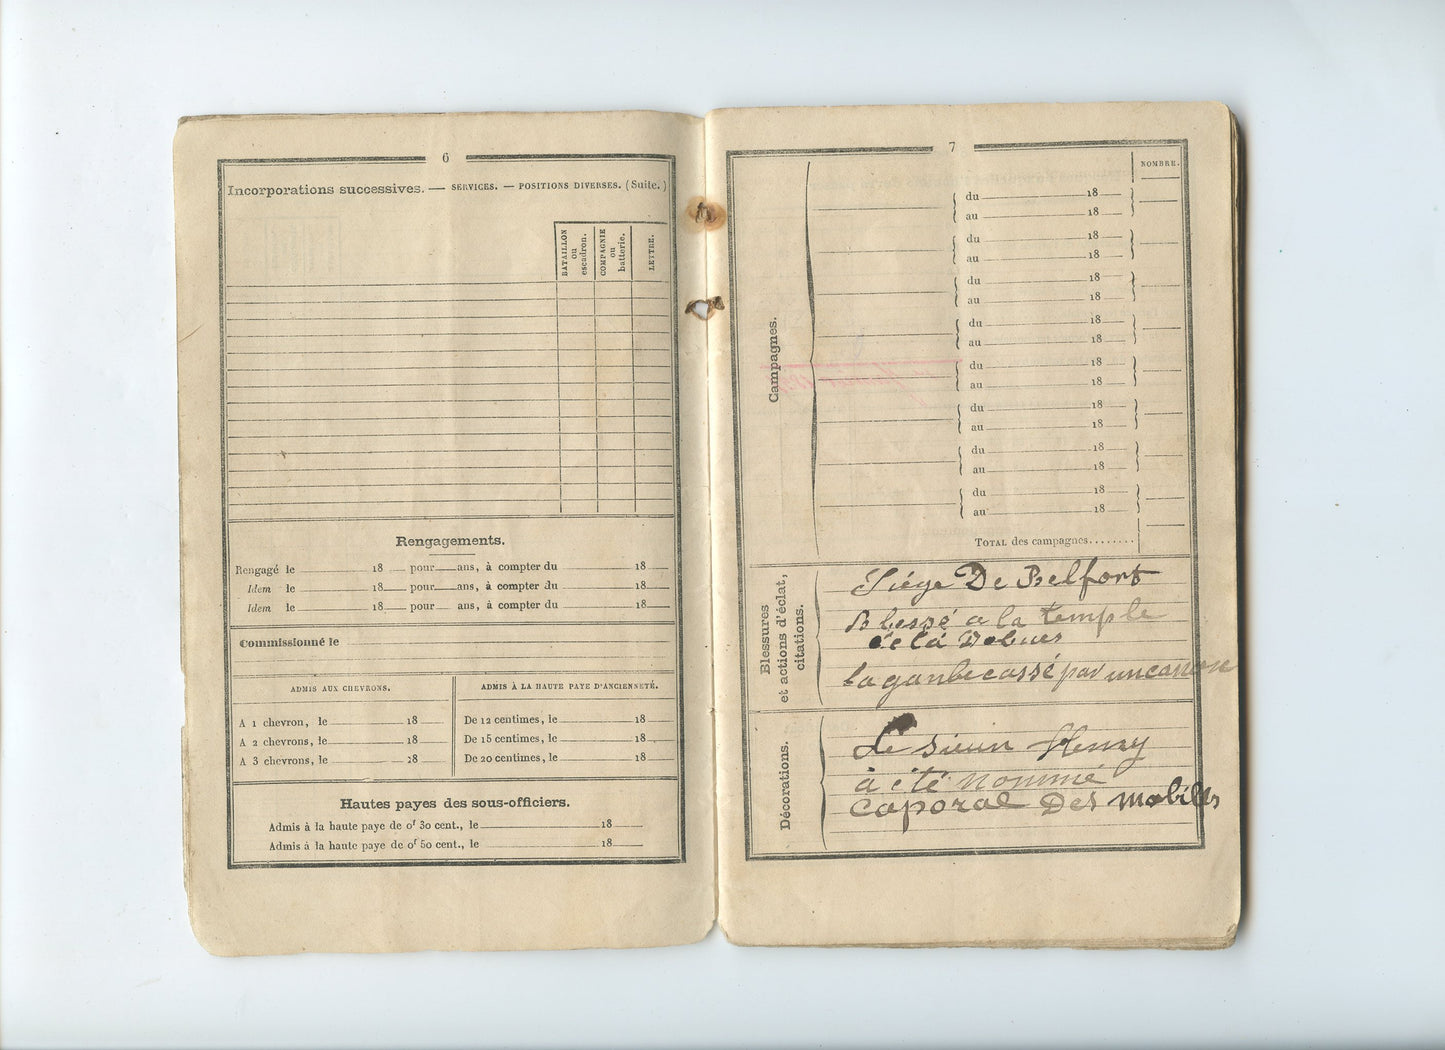 6
Incorporations successives. — SERVICES. — POSITIONS DIVERSES. (Suite.)
BATAILLON ou escadron.
COMPAGNIE ou batterie.
LETTRE.
Rengagements.
Rengagé le 18 pour ans, à compter du 18
Idem le 18 pour ans, à compter du 18
Idem le 18 pour ans, à compter du 18
Commissionné le
ADMIS AUX CHEVRONS.
A 1 chevron, le 18
A 2 chevrons, le 18
A 3 chevrons, le 18
ADMIS À LA HAUTE PAYE D'ANCIENNETÉ.
De 12 centimes, le 18
De 15 centimes, le 18
De 20 centimes, le 18
Hautes payes des sous-officiers.
Admis à la haute paye de 0f 30 cent., le 18
Admis à la haute paye de 0f 50 cent., le 18
7
NOMBRE.
Campagnes.
du 18
au 18
du 18
au 18
du 18
au 18
du 18
au 18
du 18
au 18
du 18
au 18
du 18
au 18
du 18
au 18
TOTAL des campagnes........
Blessures
et actions d'éclat,
citations.
Siége De Belfort
Blessé a la temple
de la
la ganbe cassé par un canon
Décorations.
Le sieur Henry
à été nommé
caporal Des mobilles